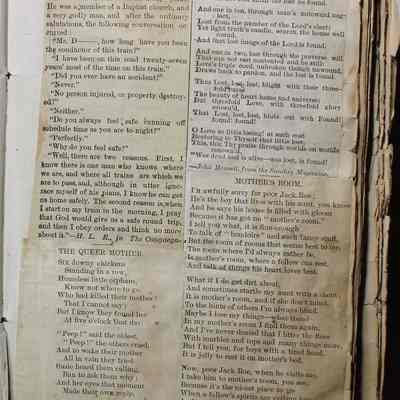 He was a member of a Baptist church, and
a very godly man, and after the ordinary
salutations, the following conversation
"Mr. D——, how long have you been
the conductor of this train?"
"I have been on this road twenty-seven
years' most of the time on this train."
"Did you ever have an accident?"
"Never."
"No person injured, or property destroyed?"
"Neither."
"Do you always feel safe running off
schedule time as you are to-night?"
"Perfectly."
"Why do you feel safe?"
"Well, there are two reasons. First, I
know there is one man who knows where
we are, and where all trains are which we
are to pass, and, although in utter ignorance
myself of his plans, I know he can get
us home safely. The second reason is, when
I start on my train in the morning, I pray
that God would give us a safe round trip,
and then I obey orders and think no more
about it."—H. L. in The Congrega-
THE QUEER MOTHER.
Six downy chickens
Standing in a row,
Homeless little orphans,
Know not where to go.
Who had killed their mother?
That I cannot say;
But I know they found her
At five o'clock that day.
"Peep!" said the oldest,
"Peep!" the others cried,
And to wake their mother
All in vain they tried.
Susie heard them calling,
Ran to ask them why;
And her eyes that moment
Made their own reply.
And one in ten, through man's untoward
Lost from the number of the Lord's elect;
Yet light truth's candle, search the house well
round,
And that lost image of the Lord is found.
And one in two, lost through the perverse will
That can not rest contented and be still;
Love's triple cord, unbroken though unwound,
Draws back to pardon, and the lost is found.
Thus Lost, lost, lost, blight with their three-
The beauty of heart home and universe;
But threefold Love, with threefold glory
crown'd,
That Lost, lost, lost, blots out with Found!
found! Found!
O Love so little losing! at such cost
Restoring to Thyself that little lost,
This, this Thy praise through worlds on worlds
"Wee dead lost is alive—was lost, is found!
—John Monsell, from the Sunday Magazine.
MOTHER'S ROOM.
I'm awfully sorry for poor Jack Roe;
He's the boy that lives with his aunt, you know
And he says his house is filled with gloom
Because it has got no "mother's room."
I tell you what, it is fine enough
To talk of "boudoirs" and such fancy stuff,
But the room of rooms that seems best to me,
The room where I'd always rather be,
Is mother's room, where a fellow can rest,
And talk of things his heart loves best.
What if I do get dirt about,
And sometimes startle my aunt with a shout,
It is mother's room, and if she don't mind,
To the hints of others I'm always blind.
Maybe I lose my things—what then?
In my mother's room I find them again.
And I've never denied that I litter the floor
With marbles and tops and many things more
But I tell you, for boys with a tired head,
It is jolly to rest it on mother's bed.
Now, poor Jack Roe, when he visits me,
I take him to mother's room, you see,
Because it's the nicest place to go
When a fellow's spirits are getting